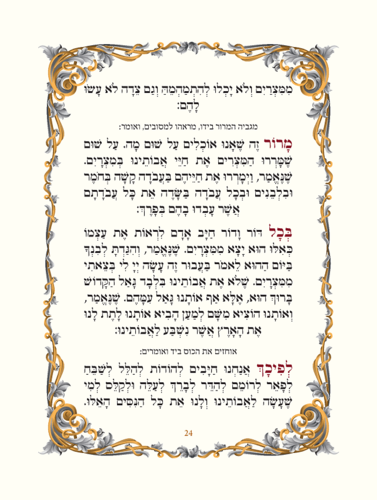 מִמִּצְרַיִם וְלֹא יָכְלוּ לְהִתְמַהְמֵהַּ וְגַם צֵדָה לֹא עָשׂוּ
לָהֶם:
מגביה המרור בידו, מראהו למסובים, ואומר:
מָרוֹר זֶה שֶׁאָנוּ אוֹכְלִים עַל שׁוּם מָה. עַל שׁוּם
שֶׁמָּרְרוּ הַמִּצְרִים אֶת חַיֵּי אֲבוֹתֵינוּ בְּמִצְרָיִם.
שֶׁנֶּאֱמַר, וַיְמָרְרוּ אֶת חַיֵּיהֶם בַּעֲבֹדָה קָשָׁה בְּחֹמֶר
וּבִלְבֵנִים וּבְכָל עֲבֹדָה בַּשָּׂדֶה אֵת כָּל עֲבֹדָתָם
אֲשֶׁר עָבְדוּ בָהֶם בְּפָרֶךְ:
בְּכָל דּוֹר וָדוֹר חַיָּב אָדָם לִרְאוֹת אֶת עַצְמוֹ
כְּאִלּוּ הוּא יָצָא מִמִּצְרָיִם. שֶׁנֶּאֱמַר, וְהִגַּדְתָּ לְבִנְךָ
בַּיּוֹם הַהוּא לֵאמֹר בַּעֲבוּר זֶה עָשָׂה יְיָ לִי בְּצֵאתִי
מִמִּצְרָיִם. שֶׁלֹּא אֶת אֲבוֹתֵינוּ בִּלְבָד גָּאַל הַקָּדוֹשׁ
בָּרוּךְ הוּא, אֶלָּא אַף אוֹתָנוּ גָּאַל עִמָּהֶם. שֶׁנֶּאֱמַר,
וְאוֹתָנוּ הוֹצִיא מִשָּׁם לְמַעַן הָבִיא אוֹתָנוּ לָתֶת לָנוּ
אֶת הָאָרֶץ אֲשֶׁר נִשְׁבַּע לַאֲבוֹתֵינוּ:
אוחזים את הכוס ביד ואומרים:
לְפִיכָךְ אֲנַחְנוּ חַיָּבִים לְהוֹדוֹת לְהַלֵּל לְשַׁבֵּחַ
לְפָאֵר לְרוֹמֵם לְהַדֵּר לְבָרֵךְ לְעַלֵּה וּלְקַלֵּס לְמִי
שֶׁעָשָׂה לַאֲבוֹתֵינוּ וְלָנוּ אֶת כָּל הַנִּסִּים הָאֵלּוּ.
24